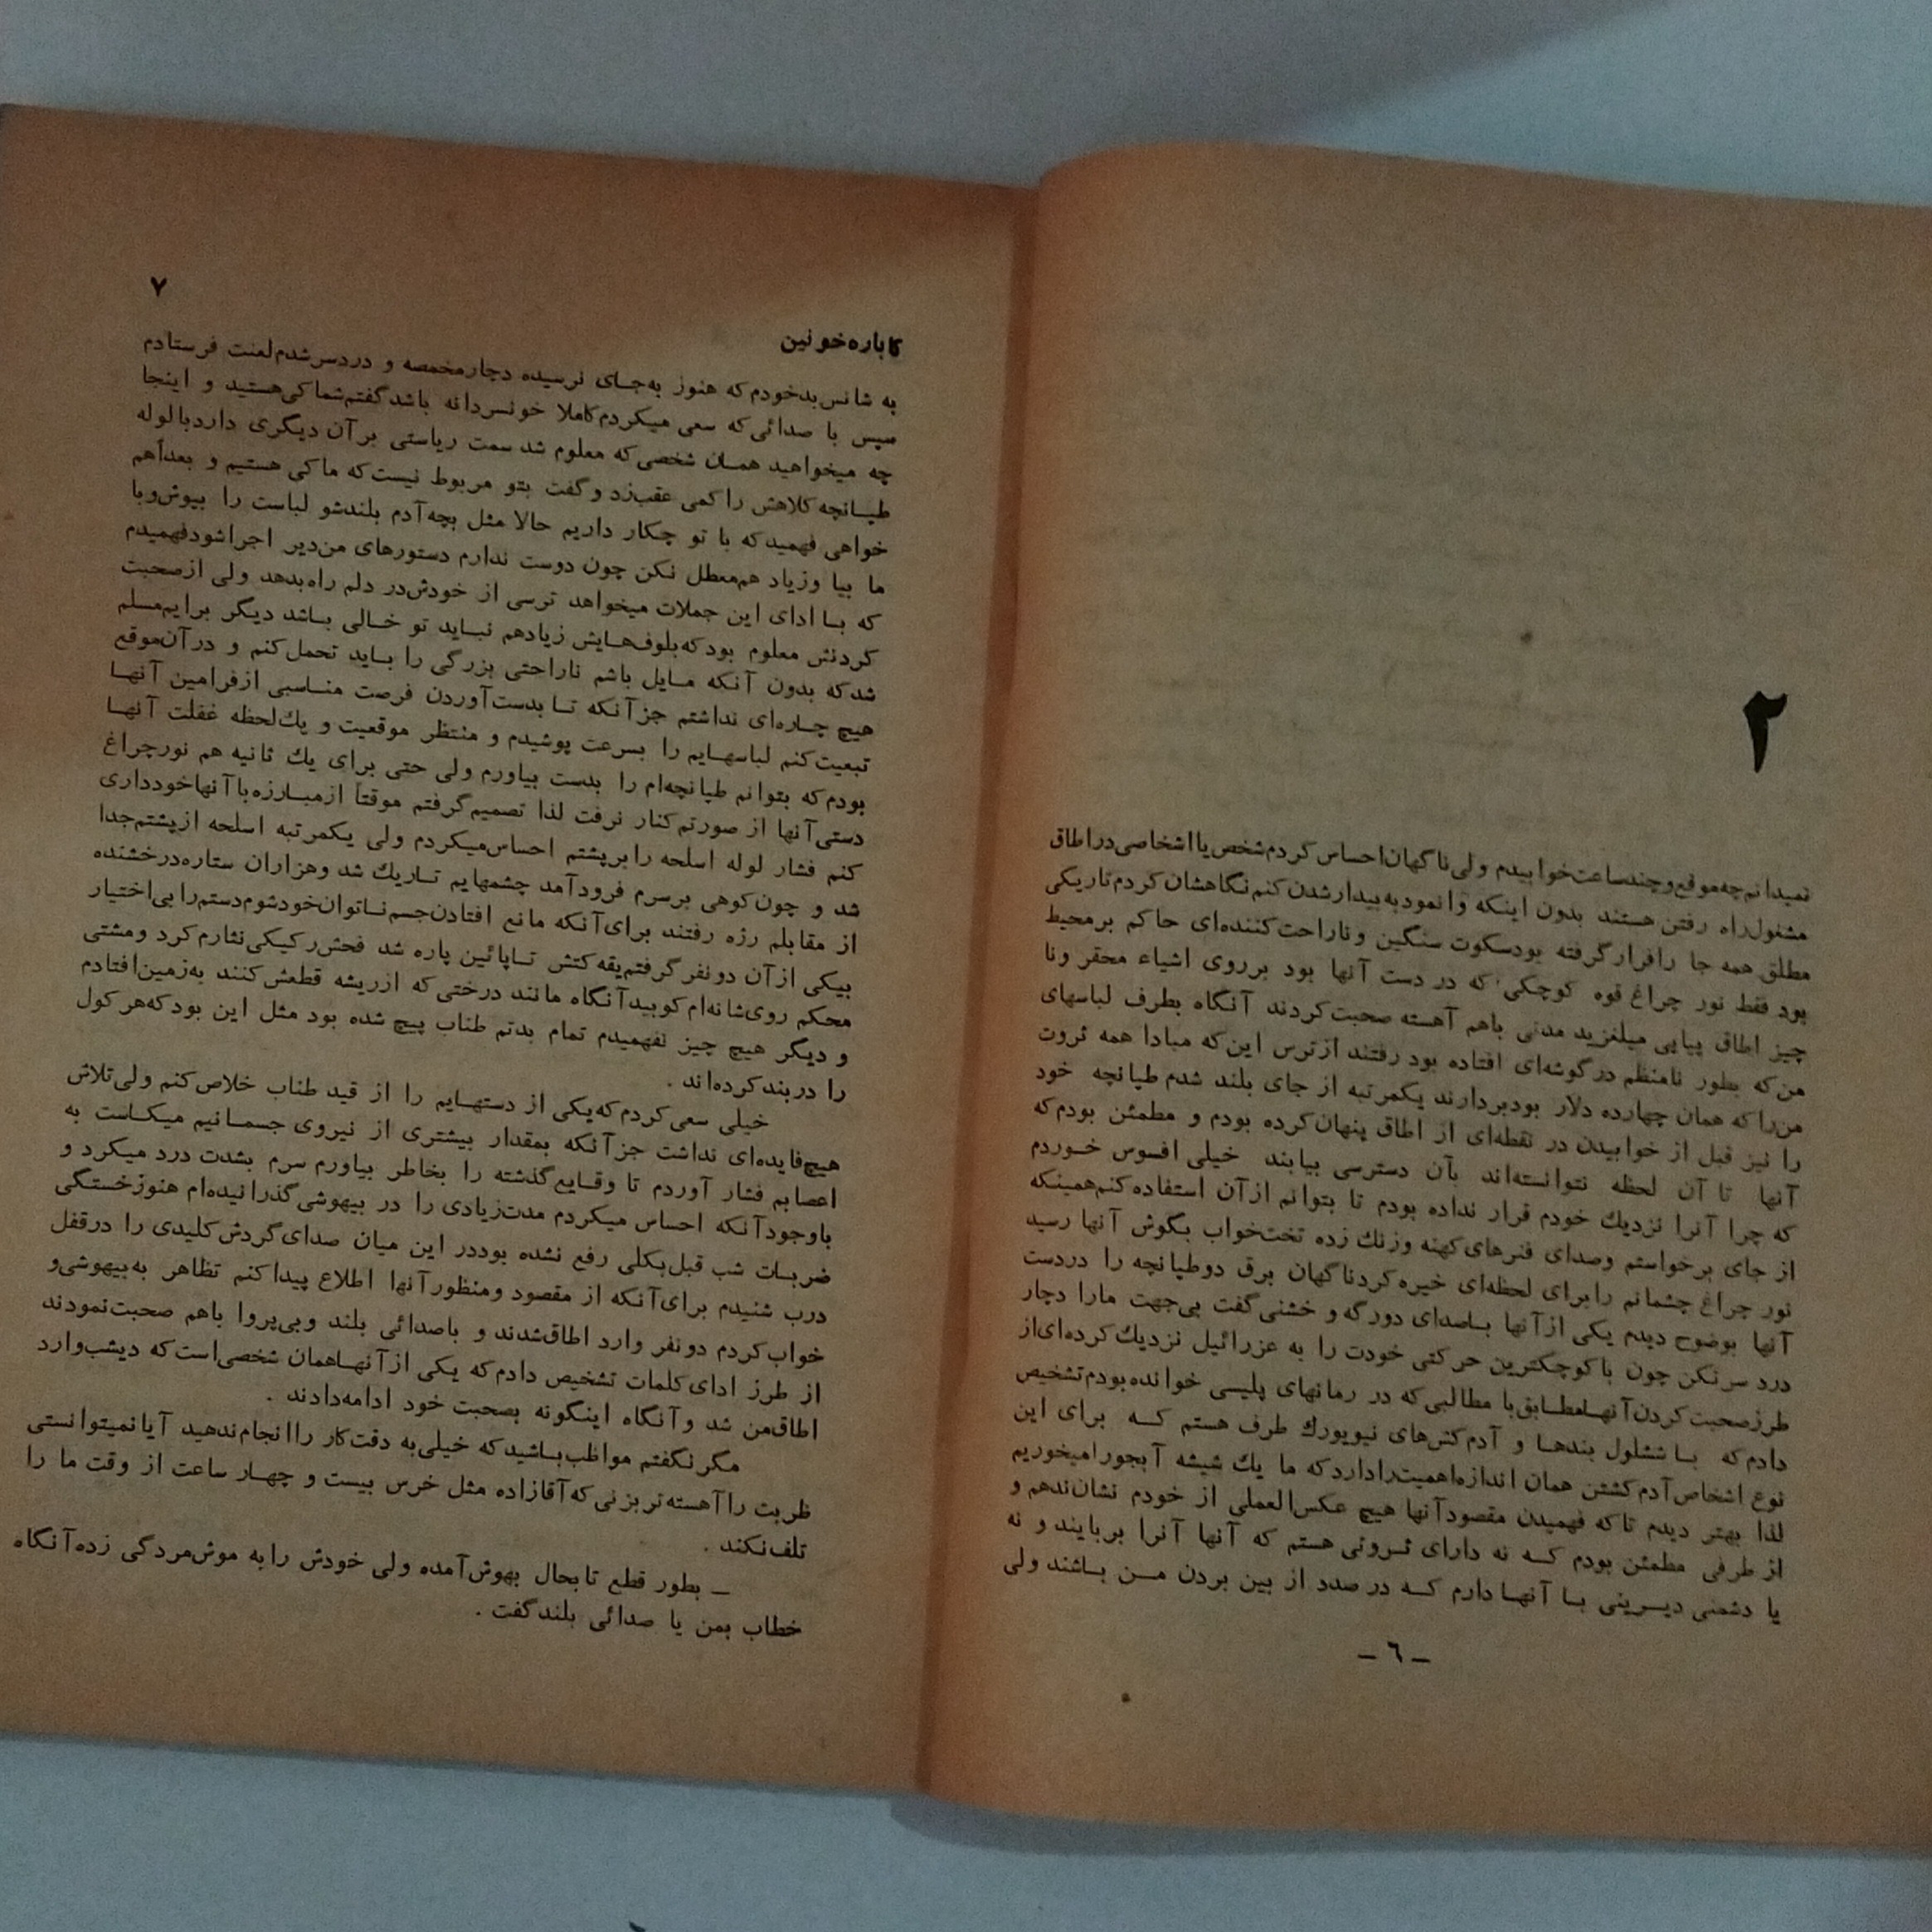 ۲
نمیدانم‌چه‌موقع‌وچندساعت‌خوابیدم ولی‌ناگهان‌احساس‌کردم‌شخص‌یااشخاصی‌دراطاق
مشغول‌راه رفتن هستند بدون اینکه وانمودبه‌بیدارشدن‌کنم‌نگاهشان‌کردم‌تاریکی
مطلق همه جا رافرارگرفته بودسکوت سنگین وناراحت‌کننده‌ای حاکم برمحیط
بود فقط نور چراغ قوه کوچکی که در دست آنها بود برروی اشیاء محقر ونا
چیز اطاق پیاپی میلغزید مدتی باهم آهسته صحبت‌کردند آنگاه بطرف لباسهای
من‌که بطور نامنظم درگوشه‌ای افتاده بود رفتند ازترس این‌که مبادا همه ثروت
من‌راکه همان چهارده دلار بودبردارند یکمرتبه از جای بلند شدم طپانچه خود
را نیز قبل از خوابیدن در نقطه‌ای از اطاق پنهان‌کرده بودم و مطمئن بودم‌که
آنها تا آن لحظه نتوانسته‌اند بآن دسترسی بیابند خیلی افسوس خوردم
که چرا آنرا نزدیك خودم قرار نداده بودم تا بتوانم ازآن استفاده‌کنم‌همینکه
از جای برخواستم وصدای فنرهای‌کهنه وزنك زده تخت‌خواب بگوش آنها رسید
نور چراغ چشمانم رابرای لحظه‌ای خیره‌کردناگهان برق دوطپانچه را دردست
آنها بوضوح دیدم یکی ازآنها باصدای دورگه و خشنی‌گفت بی‌جهت مارا دچار
درد سرنکن چون باکوچکترین حرکتی خودت را به عزرائیل نزدیك‌کرده‌ای‌از
طرزصحبت‌کردن‌آنهامطابق‌با مطالبی‌که در رمانهای پلیسی خوانده‌بودم‌تشخیص
دادم‌که با ششلول بندها و آدم‌کش‌های نیویورك طرف هستم که برای این
نوع اشخاص‌آدم‌کشتن همان اندازه‌اهمیت‌راداردکه ما یك شیشه آبجورامیخوریم
لذا بهتر دیدم تاکه فهمیدن مقصودآنها هیچ عکس‌العملی از خودم نشان‌ندهم و
از طرفی مطمئن بودم که نه دارای ثروتی هستم که آنها آنرا بربایند و نه
یا دشمنی دیرینی با آنها دارم که در صدد از بین بردن من باشند ولی
ـ ٦ ـ
۷
کاباره‌خونین
به شانس‌بدخودم‌که هنوز به‌جای نرسیده دچارمخمصه و دردسرشدم‌لعنت فرستادم
سپس با صدائی‌که سعی میکردم‌کاملا خونسردانه باشدگفتم‌شماکی‌هستید و اینجا
چه میخواهید همان شخصی‌که معلوم شد سمت ریاستی برآن دیگری داردبالوله
طپانچه‌کلاهش راکمی عقب‌زد وگفت بتو مربوط نیست‌که ماکی هستیم و بعداًهم
خواهی فهمیدکه با تو چکار داریم حالا مثل بچه‌آدم بلندشو لباست را بپوش‌وبا
ما بیا وزیاد هم‌معطل نکن چون دوست ندارم دستورهای من‌دیر اجراشودفهمیدم
که با ادای این جملات میخواهد ترسی از خودش‌در دلم راه‌بدهد ولی ازصحبت
کردنش معلوم بودکه‌بلوف‌هایش زیادهم نباید تو خالی باشد دیگر برایم‌مسلم
شدکه بدون آنکه مایل باشم ناراحتی بزرگی را باید تحمل‌کنم و درآن‌موقع
هیچ چاره‌ای نداشتم جزآنکه تا بدست‌آوردن فرصت مناسبی ازفرامین آنها
تبعیت‌کنم لباسهایم را بسرعت پوشیدم و منتظر موقعیت و یك‌لحظه غفلت آنها
بودم‌که بتوانم طپانچه‌ام را بدست بیاورم ولی حتی برای یك ثانیه هم نورچراغ
دستی‌آنها از صورتم‌کنار نرفت لذا تصمیم‌گرفتم موقتاً ازمبارزه‌باآنهاخودداری
کنم فشار لوله اسلحه رابرپشتم احساس‌میکردم ولی یکمرتبه اسلحه ازپشتم‌جدا
شد و چون‌کوهی برسرم فرودآمد چشمهایم تاریك شد وهزاران ستاره‌درخشنده
از مقابلم رژه رفتند برای‌آنکه مانع افتادن‌جسم‌ناتوان‌خودشوم‌دستم‌رابی‌اختیار
بیکی ازآن دونفرگرفتم‌یقه‌کتش تاپائین پاره شد فحش‌رکیکی‌نثارم‌کرد ومشتی
محکم روی‌شانه‌ام‌کوبیدآنگاه مانند درختی‌که ازریشه قطعش‌کنند به‌زمین‌افتادم
و دیگر هیچ چیز نفهمیدم تمام بدتم طناب پیچ شده بود مثل این بودکه‌هرکول
را دربندکرده‌اند .
خیلی سعی‌کردم‌که‌یکی از دستهایم را از قید طناب خلاص‌کنم ولی‌تلاش
هیچ‌فایده‌ای نداشت جزآنکه بمقدار بیشتری از نیروی جسمانیم میکاست به
اعصابم فشار آوردم تا وقایع‌گذشته را بخاطر بیاورم سرم بشدت درد میکرد و
باوجودآنکه احساس میکردم مدت‌زیادی را در بیهوشی‌گذرانیده‌ام هنوزخستگی
ضربات شب قبل‌بکلی رفع نشده بوددر این میان صدای‌گردش‌کلیدی را درقفل
درب شنیدم برای‌آنکه از مقصود ومنظورآنها اطلاع پیداکنم تظاهر به‌بیهوشی‌و
خواب‌کردم دونفر وارد اطاق‌شدند و باصدائی بلند وبی‌پروا باهم صحبت‌نمودند
از طرز ادای‌کلمات تشخیص دادم‌که یکی ازآنهاهمان شخصی‌است‌که دیشب‌وارد
اطاق‌من شد وآنگاه اینگونه بصحبت خود ادامه‌دادند .
مگرنگفتم مواظب‌باشیدکه خیلی‌به دقت‌کار راانجام‌ندهید آیانمیتوانستی
ظربت راآهسته‌تربزنی‌که‌آقازاده مثل خرس بیست و چهار ساعت از وقت ما را
تلف‌نکند .
ـ بطور قطع تابحال بهوش‌آمده ولی خودش رابه موش‌مردگی زده‌آنگاه
خطاب بمن با صدائی بلندگفت .